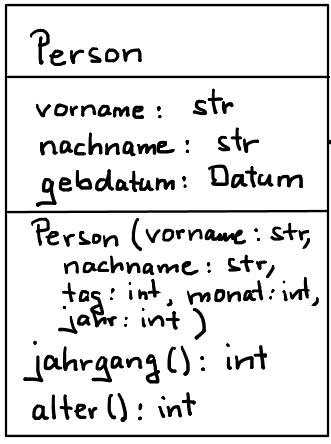 Person
vorname: str
nachname: str
gebdatum: Datum
Person (vorname: str,
nachname: str,
tag: int, monat: int,
jahr: int)
jahrgang(): int
alter(): int